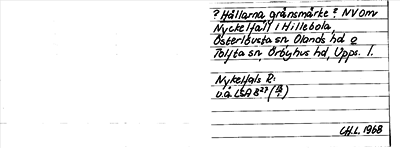 ? Hållarna gränsmärke? NV om
Nyckelfall i Hillebola
Österlövsta sn Olands hd o
Tolfta sn, Örbyhus hd, Upps. l.
Nykelfals R:
u.å. LSA B
CH.L. 1968